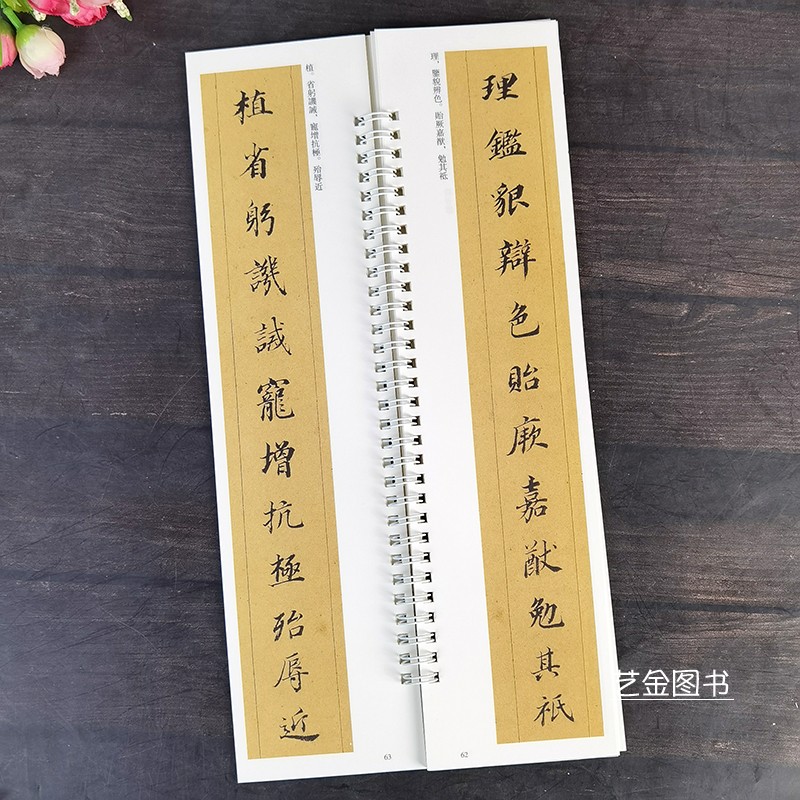 理鑑貌辯色貽厥嘉猷勉其祗
理，鑒貌辨色。貽厥嘉猷，勉其祗
62
植。省躬譏誡，寵增抗極。殆辱近
植省躬譏誡寵增抗極殆辱近
63
艺金图书